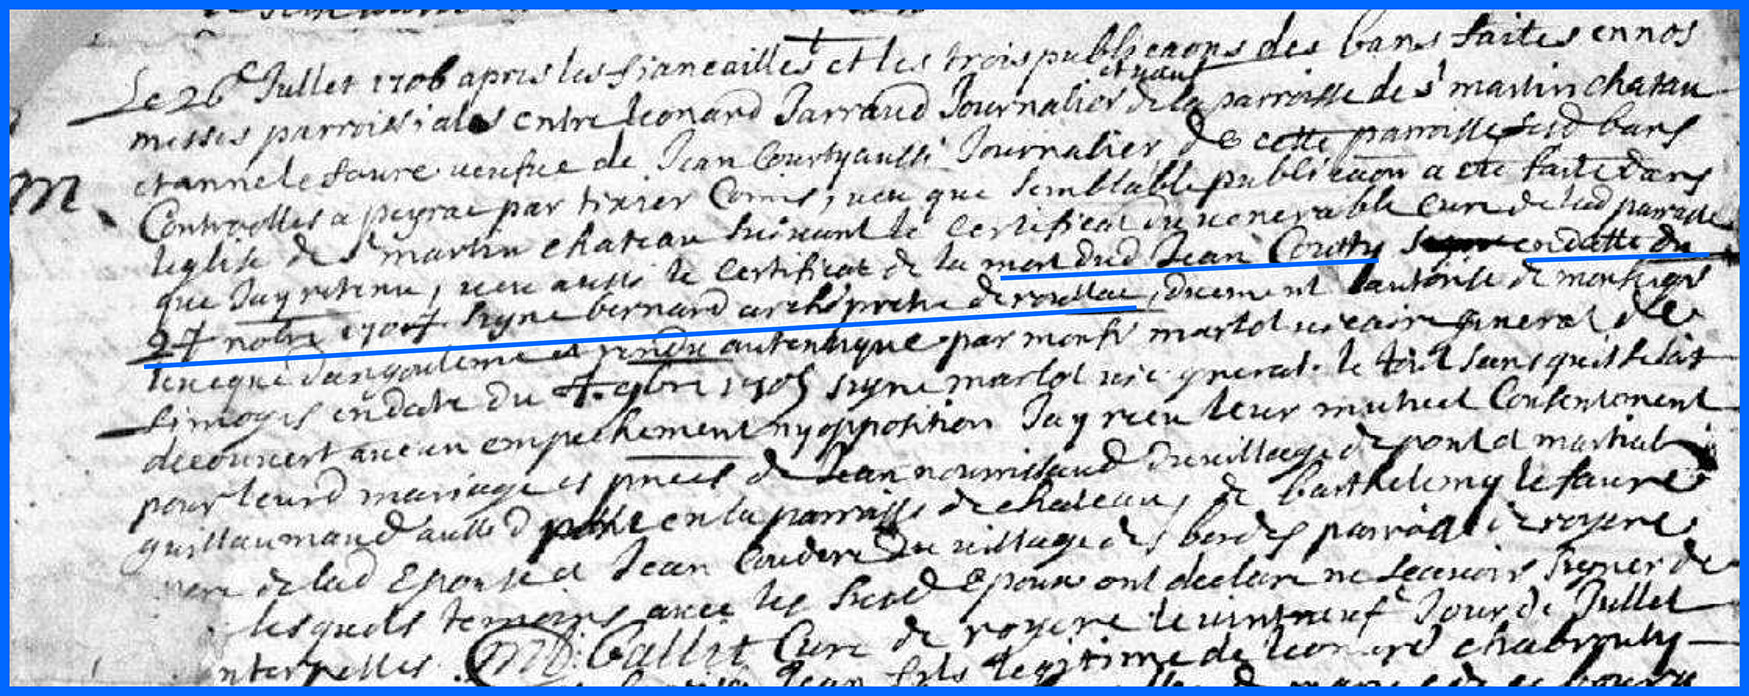 Le 26e Juillet 1706 apres les fiancailles et les trois publicaons des bans faites en nos
messes parroissiales entre leonard Jarraud Journalier et veuf de la parroisse de st martin chatau
et anne lefaure veufve de Jean Courty aussi Journalier de cette parroisse lesd bans
Controolles a peyrac par tixier Comis, veu que semblable publicaon a ete faite dans
leglise de st martin chateau suivant le certificat du venerable cure de lad parroisse
que Jay retenu, veu aussi le certificat de la mort dud Jean Courty en datte du
27 nobre 1704 signe bernard archiprestre de rouillac, duement de monseigr
leveque dangouleme et rendu autentique par monsr martol vicaire general de
limoges en date du 4. 9bre 1705 signe martol vic. general. le tout sans quil se soit
decouvert aucun empechement ny opposition Jay receu leur mutuel Consentement
pour leurd mariage es pnces de Jean nourrissaud du village de pont et martial
guillaumaud aussi en la parroisse de chateau, de barthelemy lefaure
pere de lad Epouse et Jean Couderc du village des bordes parroisse de royere
lesquels temoins avec les susd Epoux ont declare ne scavoir signer de
interpelles. Gallet Cure de royere le vint neuf Jour de Juillet
Jean fils legitime de leonard